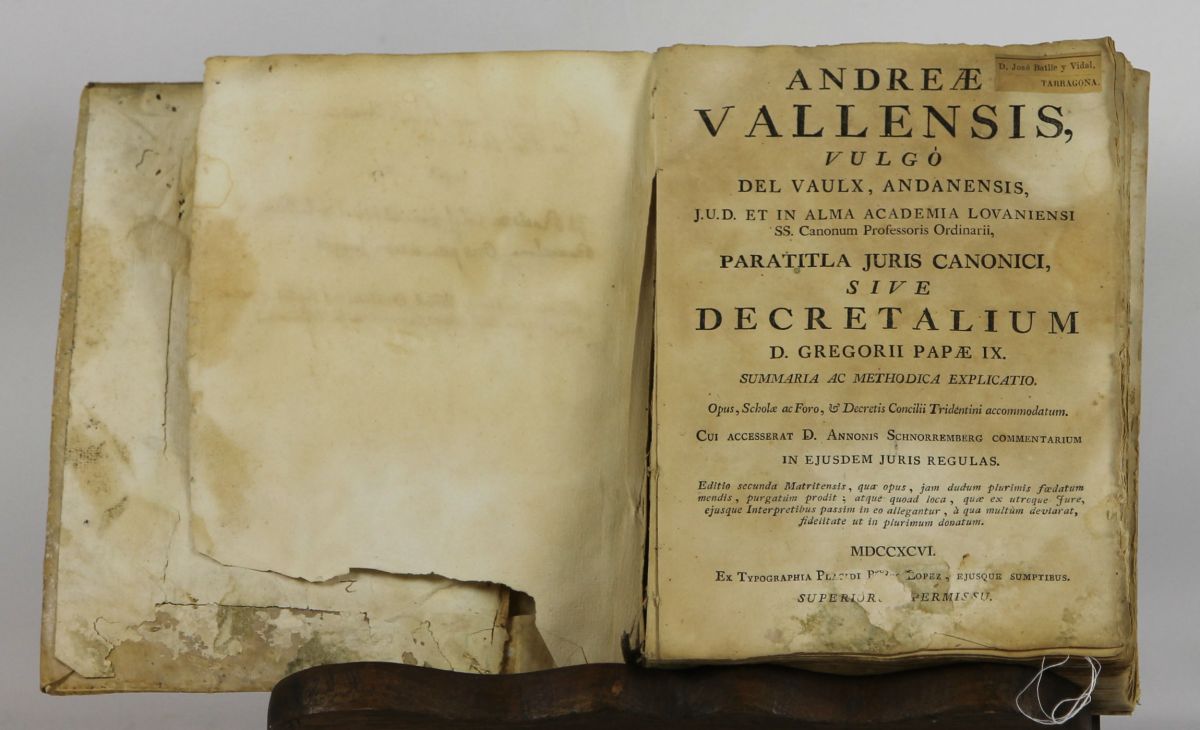 D. José Batlle y Vidal,
TARRAGONA.
ANDREÆ
VALLENSIS,
VULGÒ
DEL VAULX, ANDANENSIS,
J.U.D. ET IN ALMA ACADEMIA LOVANIENSI
SS. Canonum Professoris Ordinarii,
PARATITLA JURIS CANONICI,
SIVE
DECRETALIUM
D. GREGORII PAPÆ IX.
SUMMARIA AC METHODICA EXPLICATIO.
Opus, Scholæ ac Foro, & Decretis Concilii Tridentini accommodatum.
CUI ACCESSERAT D. ANNONIS SCHNORREMBERG COMMENTARIUM
IN EJUSDEM JURIS REGULAS.
Editio secunda Matritensis, qua opus, jam dudum plurimis fœdatum
mendis, purgatum prodit; atque quoad loca, quæ ex utroque Jure,
ejusque Interpretibus passim in eo allegantur, à qua multùm deviarat,
fidelitate ut in plurimum donatum.
MDCCXCVI.
EX TYPOGRAPHIA LOPEZ, EJUSQUE SUMPTIBUS.
PERMISSU.